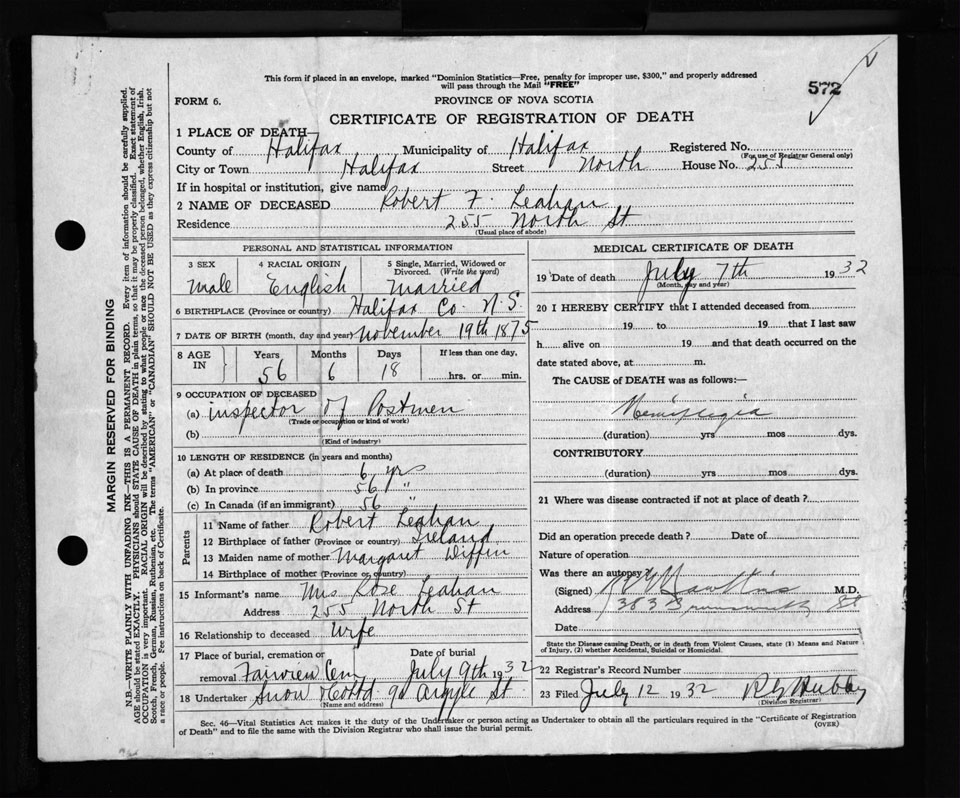 This form if placed in an envelope, marked "Dominion Statistics—Free, penalty for improper use, $300," and properly addressed
will pass through the Mail "FREE"
572
FORM 6.
PROVINCE OF NOVA SCOTIA
CERTIFICATE OF REGISTRATION OF DEATH
1 PLACE OF DEATH
County of Halifax Municipality of Halifax Registered No.
(For use of Registrar General only)
City or Town Halifax Street North House No. 255
If in hospital or institution, give name
2 NAME OF DECEASED Robert F. Leahan
Residence 255 North St
(Usual place of abode)
PERSONAL AND STATISTICAL INFORMATION
3 SEX 4 RACIAL ORIGIN 5 Single, Married, Widowed or
Divorced. (Write the word)
Male English Married
6 BIRTHPLACE (Province or country) Halifax Co. N.S.
7 DATE OF BIRTH (month, day and year) November 19th 1875
8 AGE IN Years Months Days If less than one day,
56 6 18 hrs. or min.
9 OCCUPATION OF DECEASED
(a) inspector of Postmen
(Trade or occupation or kind of work)
(b)
(Kind of industry)
10 LENGTH OF RESIDENCE (in years and months)
(a) At place of death 6 yrs
(b) In province 56 "
(c) In Canada (if an immigrant) 56 "
Parents
11 Name of father Robert Leahan
12 Birthplace of father (Province or country) Ireland
13 Maiden name of mother Margaret Wiffin
14 Birthplace of mother (Province or country)
15 Informant's name Mrs Rose Leahan
Address 255 North St
16 Relationship to deceased Wife
17 Place of burial, cremation or Date of burial
removal Fairview Cem July 9th 1932
18 Undertaker Snow & Co Ltd 90 Argyle St.
(Name and address)
MEDICAL CERTIFICATE OF DEATH
19 Date of death July 7th 1932
(Month, day and year)
20 I HEREBY CERTIFY that I attended deceased from
19 to 19 that I last saw
h alive on 19 and that death occurred on the
date stated above, at m.
The CAUSE OF DEATH was as follows:—
(duration) yrs mos dys.
CONTRIBUTORY
(duration) yrs mos dys.
21 Where was disease contracted if not at place of death?
Did an operation precede death? Date of
Nature of operation
Was there an autopsy?
(Signed) M.D.
Address 383 Brunswick St
Date
State the Disease causing Death, or in death from Violent Causes, state (1) Means and Nature
of Injury, (2) whether Accidental, Suicidal or Homicidal.
22 Registrar's Record Number
23 Filed July 12 1932
(Division Registrar)
Sec. 46—Vital Statistics Act makes it the duty of the Undertaker or person acting as Undertaker to obtain all the particulars required in the "Certificate of Registration
of Death" and to file the same with the Division Registrar who shall issue the burial permit.
(OVER)
MARGIN RESERVED FOR BINDING
N.B.—WRITE PLAINLY WITH UNFADING INK—THIS IS A PERMANENT RECORD. Every item of information should be carefully supplied.
AGE should be stated EXACTLY. PHYSICIANS should STATE CAUSE OF DEATH in plain terms, so that it may be properly classified. Exact statement of
OCCUPATION is very important. RACIAL ORIGIN will be described by stating to what people or race the deceased person belonged, whether English, Irish,
Scotch, French, German, Russian, Ruthenian, etc. The terms "AMERICAN" or "CANADIAN" SHOULD NOT BE USED as they express citizenship but not
a race or people. See instructions on back of Certificate.